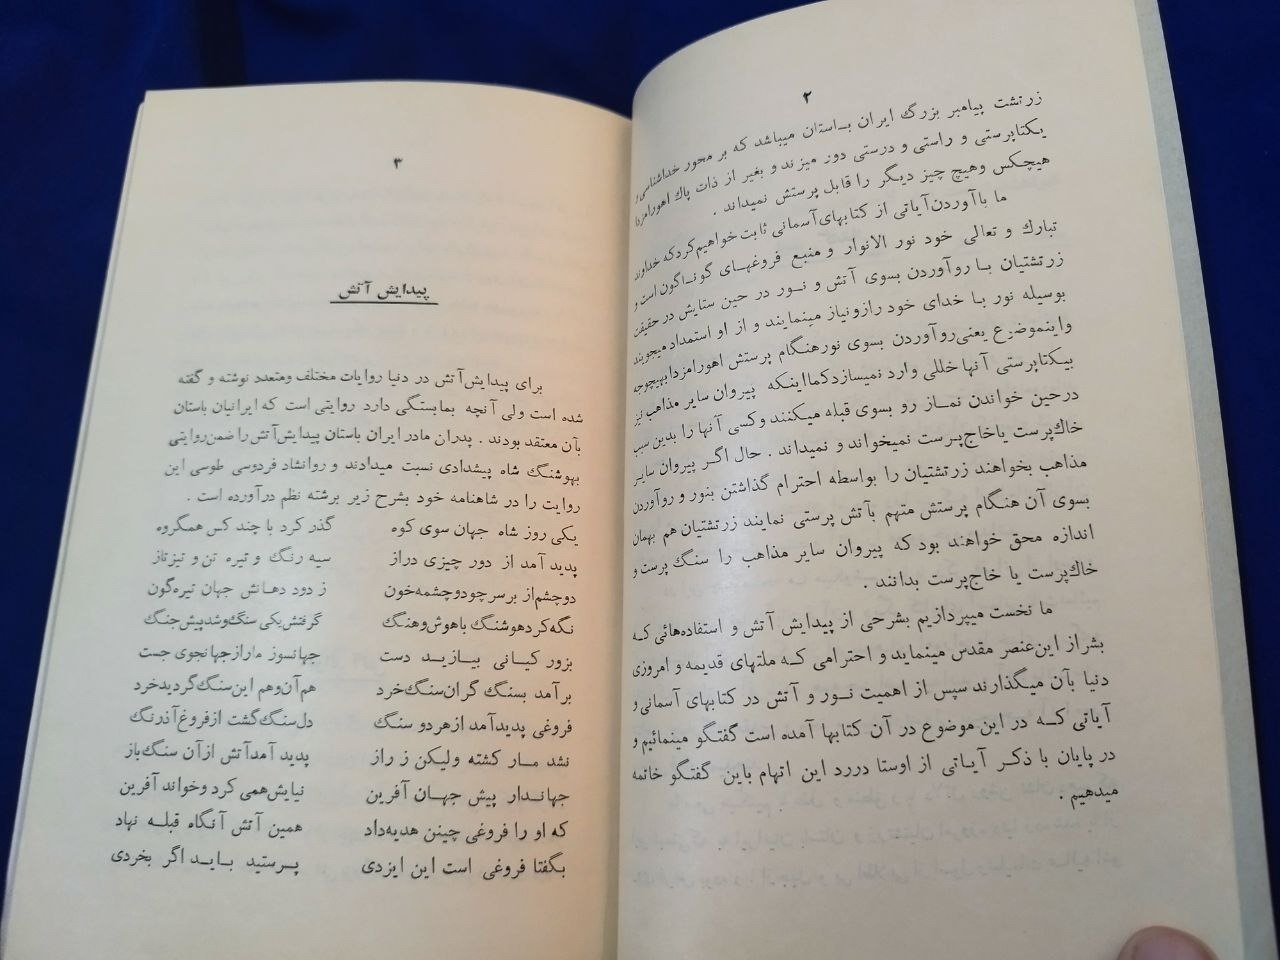 ۲
زرتشت پیامبر بزرگ ایران باستان میباشد که بر محور خداشناسی و
یکتاپرستی و راستی و درستی دور میزند و بغیر از ذات پاك اهورامزدا
هیچکس وهیچ چیز دیگر را قابل پرستش نمیداند .
ما باآوردن‌آیاتی از کتابهای‌آسمانی ثابت خواهیم‌کردکه خداوند
تبارك و تعالی خود نور الانوار و منبع فروغهای گوناگون است و
زرتشتیان با روآوردن بسوی آتش و نور در حین ستایش در حقیقت
بوسیله نور با خدای خود رازونیاز مینمایند و از او استمداد میجویند
واینموضیع یعنی‌روآوردن بسوی نورهنگام پرستش اهورامزدابهیچوجه
بیکتاپرستی آنها خللی وارد نمیسازدکمااینکه پیروان سایر مذاهب نیز
درحین خواندن نماز رو بسوی قبله میکنند وکسی آنها را بدین سبب
خاك‌پرست یاخاج‌پرست نمیخواند و نمیداند . حال اگر پیروان سایر
مذاهب بخواهند زرتشتیان را بواسطه احترام گذاشتن بنور و روآوردن
بسوی آن هنگام پرستش متهم بآتش پرستی نمایند زرتشتیان هم بهمان
اندازه محق خواهند بود که پیروان سایر مذاهب را سنگ پرست و
خاك‌پرست یا خاج‌پرست بدانند .
ما نخست میپردازیم بشرحی از پیدایش آتش و استفاده‌هائی که
بشراز این‌عنصر مقدس مینماید و احترامی که ملتهای قدیمه و امروزی
دنیا بآن میگذارند سپس از اهمیت نور و آتش در کتابهای آسمانی و
آیاتی که در این موضوع در آن کتابها آمده است گفتگو مینمائیم و
در پایان با ذکر آیاتی از اوستا دررد این اتهام باین گفتگو خاتمه
میدهیم .
۳
پیدایش آتش
برای پیدایش‌آتش در دنیا روایات مختلف ومتعدد نوشته و گفته
شده است ولی آنچه بمابستگی دارد روایتی است که ایرانیان باستان
بآن معتقد بودند . پدران مادر ایران باستان پیدایش‌آتش‌را ضمن‌روایتی
بهوشنگ شاه پیشدادی نسبت میدادند و روانشاد فردوسی طوسی این
روایت را در شاهنامه خود بشرح زیر برشته نظم درآورده است .
یکی روز شاه جهان سوی کوه گذر کرد با چند کس همگروه
پدید آمد از دور چیزی دراز سیه رنگ و تیره تن و تیزتاز
دوچشم‌از برسرچودوچشمه‌خون ز دود دهانش جهان تیره‌گون
نگه‌کردهوشنگ باهوش‌وهنگ گرفتش‌یکی سنگ‌وشدپیش‌جنگ
بزور کیانی بیازید دست جهانسوز ماراز‌جهانجوی جست
برآمد بسنگ گران‌سنگ‌خرد هم‌آن‌وهم این‌سنگ‌گردیدخرد
فروغی پدیدآمد ازهردو سنگ دل‌سنگ‌گشت ازفروغ‌آذرنگ
نشد مار کشته ولیکن ز راز پدید آمدآتش ازآن سنگ‌باز
جهاندار پیش جهان آفرین نیایش‌همی کرد وخواند آفرین
که او را فروغی چینن هدیه‌داد همین آتش آنگاه قبله نهاد
بگفتا فروغی است این ایزدی پرستید باید اگر بخردی